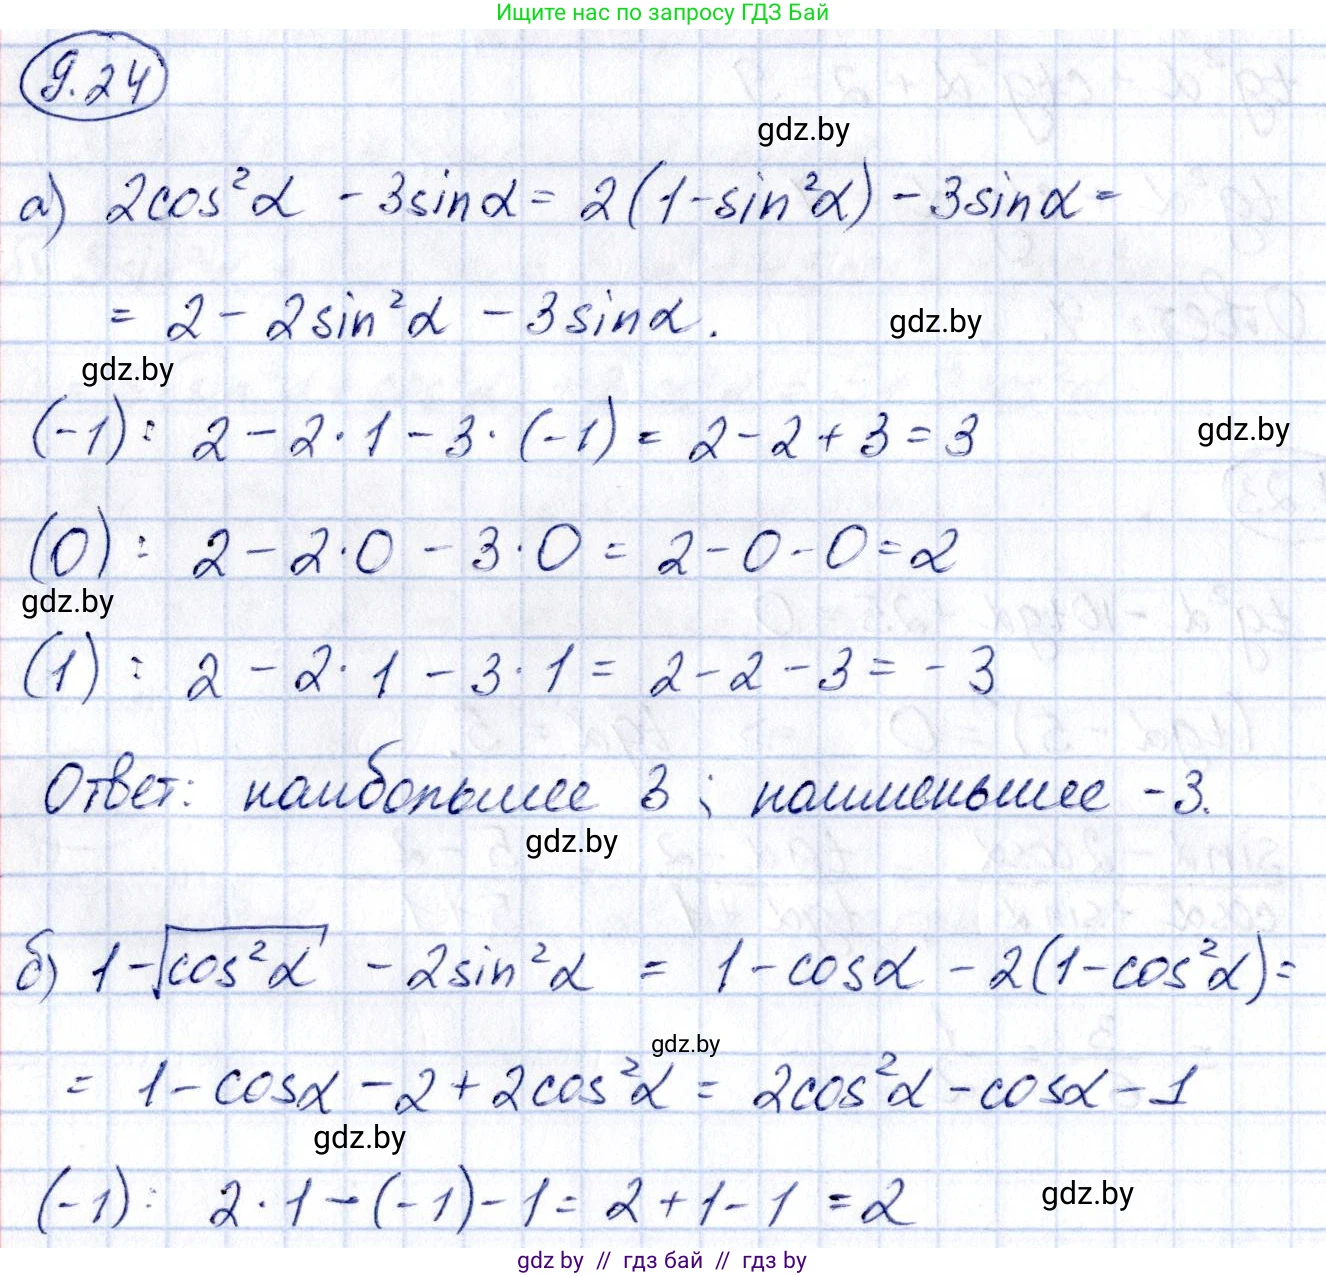 Ищите нас по запросу ГДЗ Бай
9.24
gdz.by
а) 2cos²α - 3sinα = 2(1-sin²α) - 3sinα =
= 2 - 2sin²α - 3sinα.
gdz.by
gdz.by
(-1): 2 - 2·1 - 3·(-1) = 2 - 2 + 3 = 3
gdz.by
(0): 2 - 2·0 - 3·0 = 2 - 0 - 0 = 2
gdz.by
(1): 2 - 2·1 - 3·1 = 2 - 2 - 3 = -3
Ответ: наибольшее 3; наименьшее -3.
gdz.by
б) 1 - √cos²α - 2sin²α = 1 - cosα - 2(1-cos²α) =
gdz.by
= 1 - cosα - 2 + 2cos²α = 2cos²α - cosα - 1
gdz.by
(-1): 2·1 - (-1) - 1 = 2 + 1 - 1 = 2
gdz.by
gdz by // гдз бай // гдз by